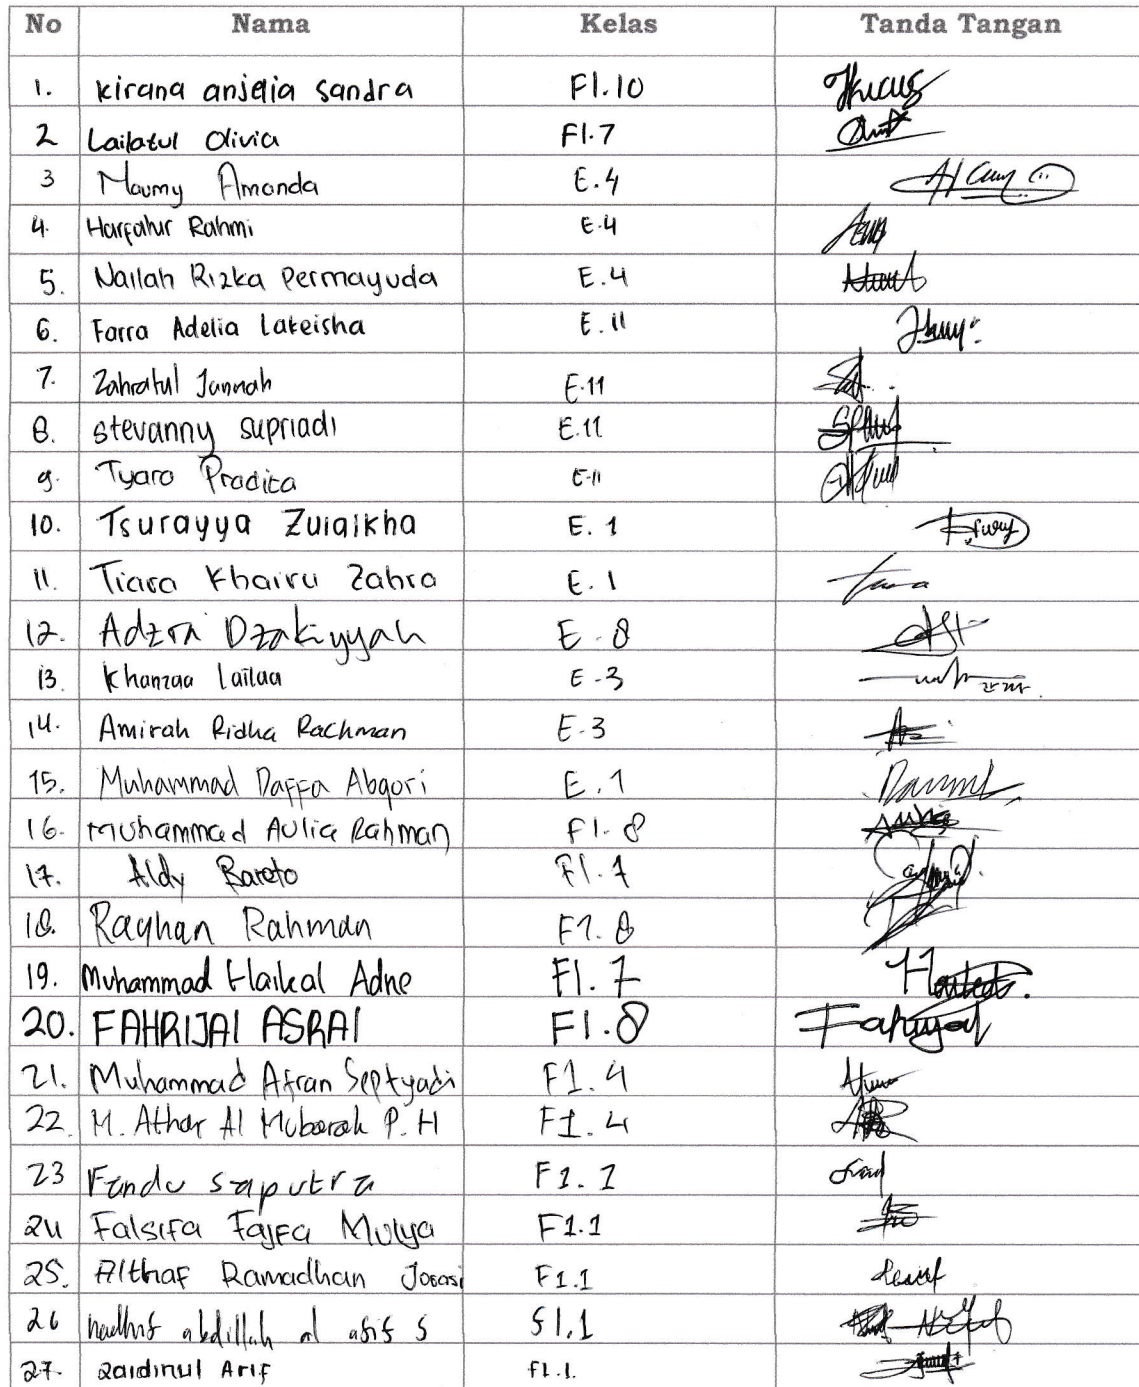 No Nama Kelas Tanda Tangan
1. kirana anjelia sandra F1.10
2 Lailatul Olivia F1.7
3 Maumy Amanda E.4
4. Harfatur Rahmi E.4
5. Nailah Rizka Permayuda E.4
6. Farra Adelia Lakeisha E.11
7. Zahratul Jannah E.11
8. stevanny supriadi E.11
9. Tyara Pradita E-11
10. Tsurayya Zulaikha E. 1
11. Tiara Khairu Zahra E. 1
12. Adzra Dzakiyyah E-8
13. Khanzaa Lailaa E-3
14. Amirah Ridha Rachman E-3
15. Muhammad Daffa Abqori E.1
16. Muhammad Aulia Rahman F1.8
17. Aldy Bareto F1.7
18. Rayhan Rahman F1.8
19. Muhammad Haikal Adne F1.7
20. FAHRIJAI ASRAI F1.8 Fahrijal
21. Muhammad Afran Septyadi F1.4
22. M. Athar Al Mubarak P. H F1.4
23 Fandu saputra F1.1
24 Falsifa Fajfa Mulya F1.1
25. Althaf Ramadhan F1.1
26 nadhif abdillah al afif s F1.1
27. Zaidinul Arif F1.1.